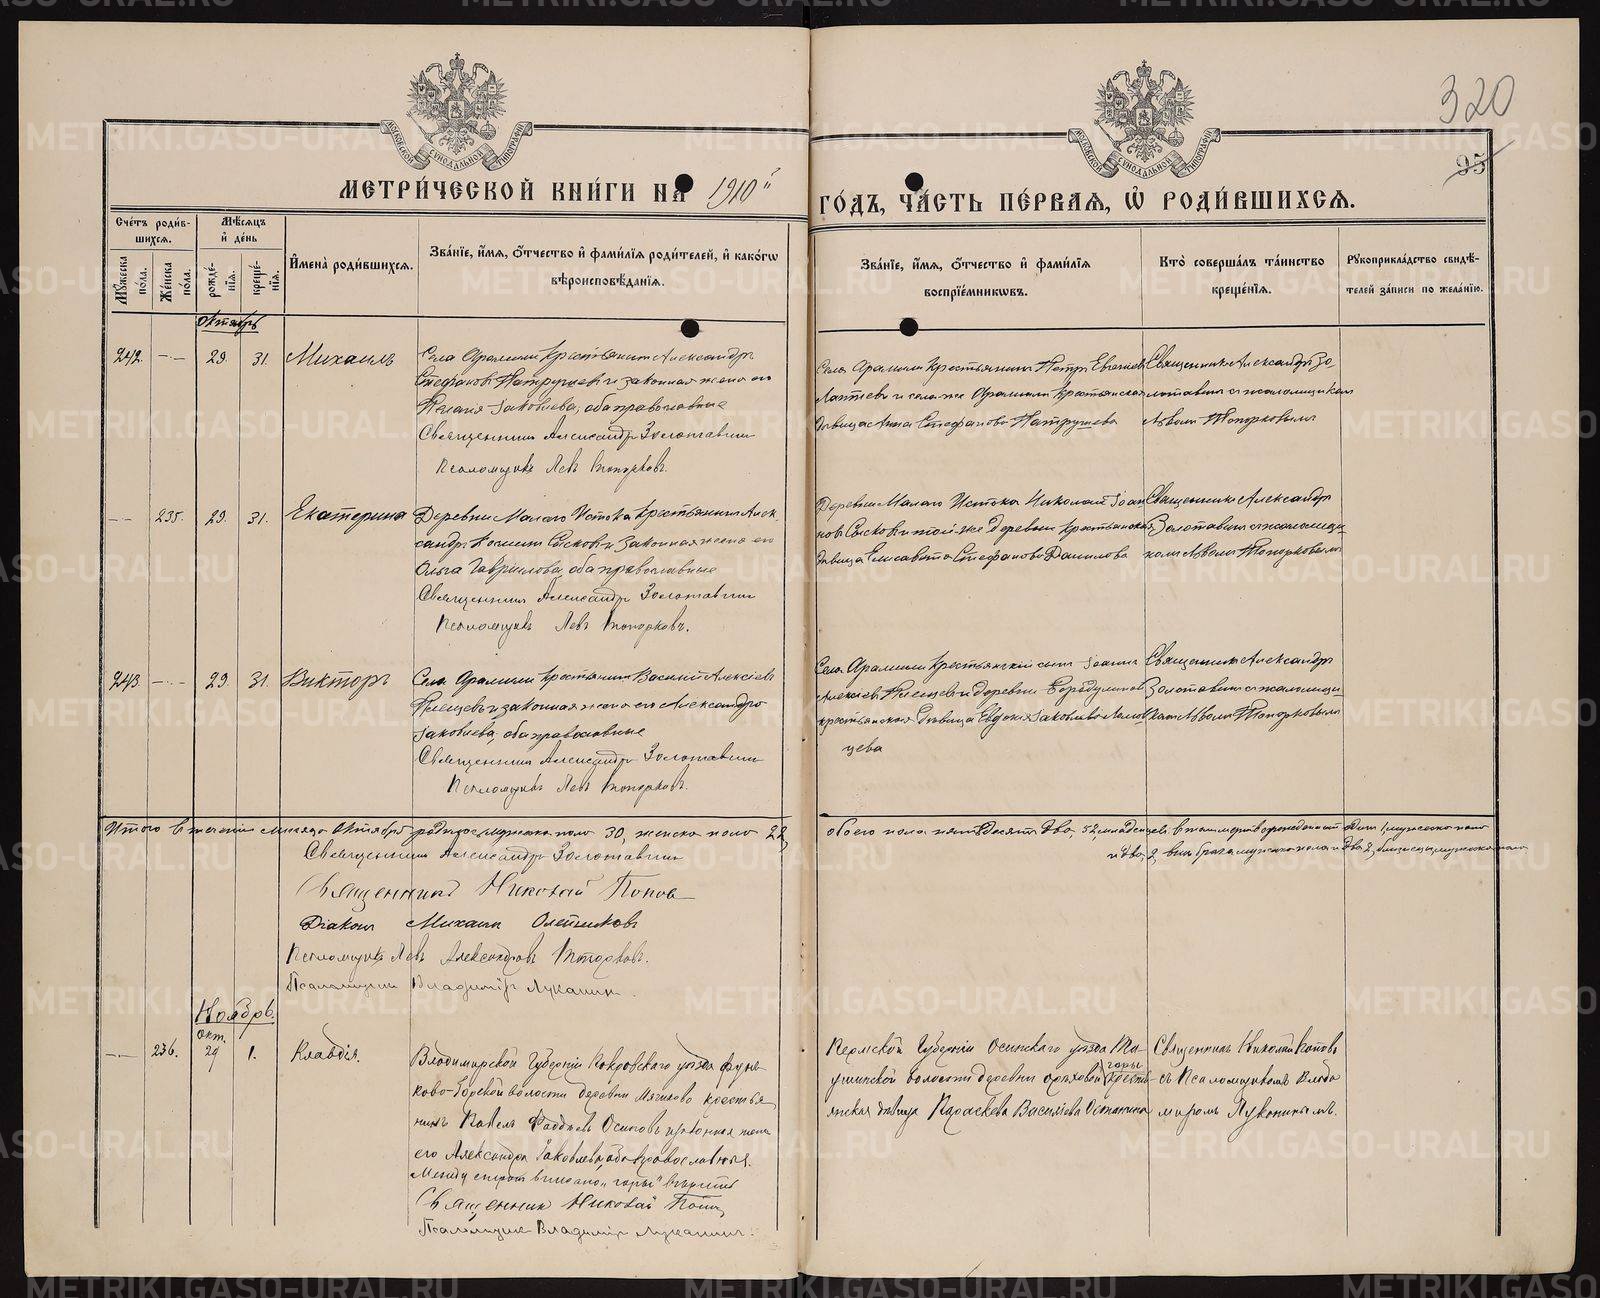 320
95
МОСКОВСКОЙ СѴНОДАЛЬНОЙ ТИПОГРАФІИ
МОСКОВСКОЙ СѴНОДАЛЬНОЙ ТИПОГРАФІИ
МЕТРИ́ЧЕСКОЙ КНИ́ГИ НА 1910й ГО́ДЪ, ЧА́СТЬ ПЕ́РВАѦ, Ѡ҆ РОДИ́ВШИХСѦ.
Сче́тъ роди́в-
шихсѧ.
Мꙋ́жеска по́ла.
Же́нска по́ла.
Мѣ́сѧцъ
и҆ де́нь
рожде́-
нїѧ.
креще́-
нїѧ.
И҆мена̀ роди́вшихсѧ.
Зва́нїе, и҆́мѧ, ѻ҆́тчество и҆ фами́лїѧ роди́телей, и҆ како́гѡ
вѣроисповѣ́данїѧ.
Зва́нїе, и҆́мѧ, ѻ҆́тчество и҆ фами́лїѧ
воспрїе́мникѡвъ.
Кто̀ соверша́лъ та́инство
креще́нїѧ.
Рꙋкоприкла́дство свидѣ́-
телей за́писи по жела́нїю.
Октябрь
242. – – 29. 31. Михаилъ
Села Арамили крестьянинъ Александръ
Стефановъ Патрушевъ и законная жена его
Пелагія Іаковлева, оба православные
Священникъ Александръ Золотавинъ
Псаломщикъ Левъ Топорковъ.
Села Арамили крестьянинъ Петръ Евгеніевъ
Лаптевъ и села же Арамили крестьянская
дѣвица Анна Стефанова Патрушева
Священникъ Александръ Зо-
лотавинъ съ псаломщикомъ
Львомъ Топорковымъ
– – 235. 29. 31. Екатерина
Деревни Малаго Истока крестьянинъ Алек-
сандръ Сысковъ и законная жена его
Ольга Гавриилова, оба православные
Священникъ Александръ Золотавинъ
Псаломщикъ Левъ Топорковъ.
Деревни Малаго Истока Николай Іоан-
новъ Сысковъ и той же деревни крестьянская
дѣвица Елисавета Стефанова Данилова
Священникъ Александръ
Золотавинъ съ псаломщи-
комъ Львомъ Топорковымъ
243. – – 29. 31. Викторъ
Села Арамили крестьянинъ Василій Алексіевъ
Плещевъ и законная жена его Александра
Іаковлева, оба православные
Священникъ Александръ Золотавинъ
Псаломщикъ Левъ Топорковъ.
Села Арамили крестьянскій сынъ Іоаннъ
Алексіевъ Плещевъ и деревни Бородулиной
крестьянская дѣвица Евдокія Іаковлева
цева
Священникъ Александръ
Золотавинъ съ псаломщи-
комъ Львомъ Топорковымъ
Итого въ теченіи мѣсяца Октября родилось мужеска пола 30, женска пола 22,
обоего пола пятьдесятъ два, 52 младенцевъ, въ томъ мертворожденный одинъ 1, мужеска пола
и два 2 внѣ брака мужска пола и два 2 близнецы мужеска пола
Священникъ Александръ Золотавинъ
Священникъ Николай Поповъ
Діаконъ Михаилъ Олейниковъ
Псаломщикъ Левъ Александровъ Топорковъ.
Псаломщикъ Владиміръ Луканинъ.
Ноябрь.
окт.
– – 236. 29 1. Клавдія.
Владимирской губерніи Покровскаго уѣзда Фуни-
ково-Горской волости деревни Мячиково крестья-
нинъ Павелъ Фаддѣевъ Осиповъ и законная жена
его Александра Іаковлева, оба православные.
Между строкъ вписано „горы“ вѣрить
Священникъ Николай Поповъ
Псаломщикъ Владиміръ Луканинъ.
Пермской губерніи Осинскаго уѣзда
волости деревни Орѣховой горы кресть-
янская дѣвица Параскева Василіева Останина
Священникъ Николай Поповъ
съ Псаломщикомъ Влади-
миромъ Луканинымъ.
METRIKI.GASO-URAL.RU